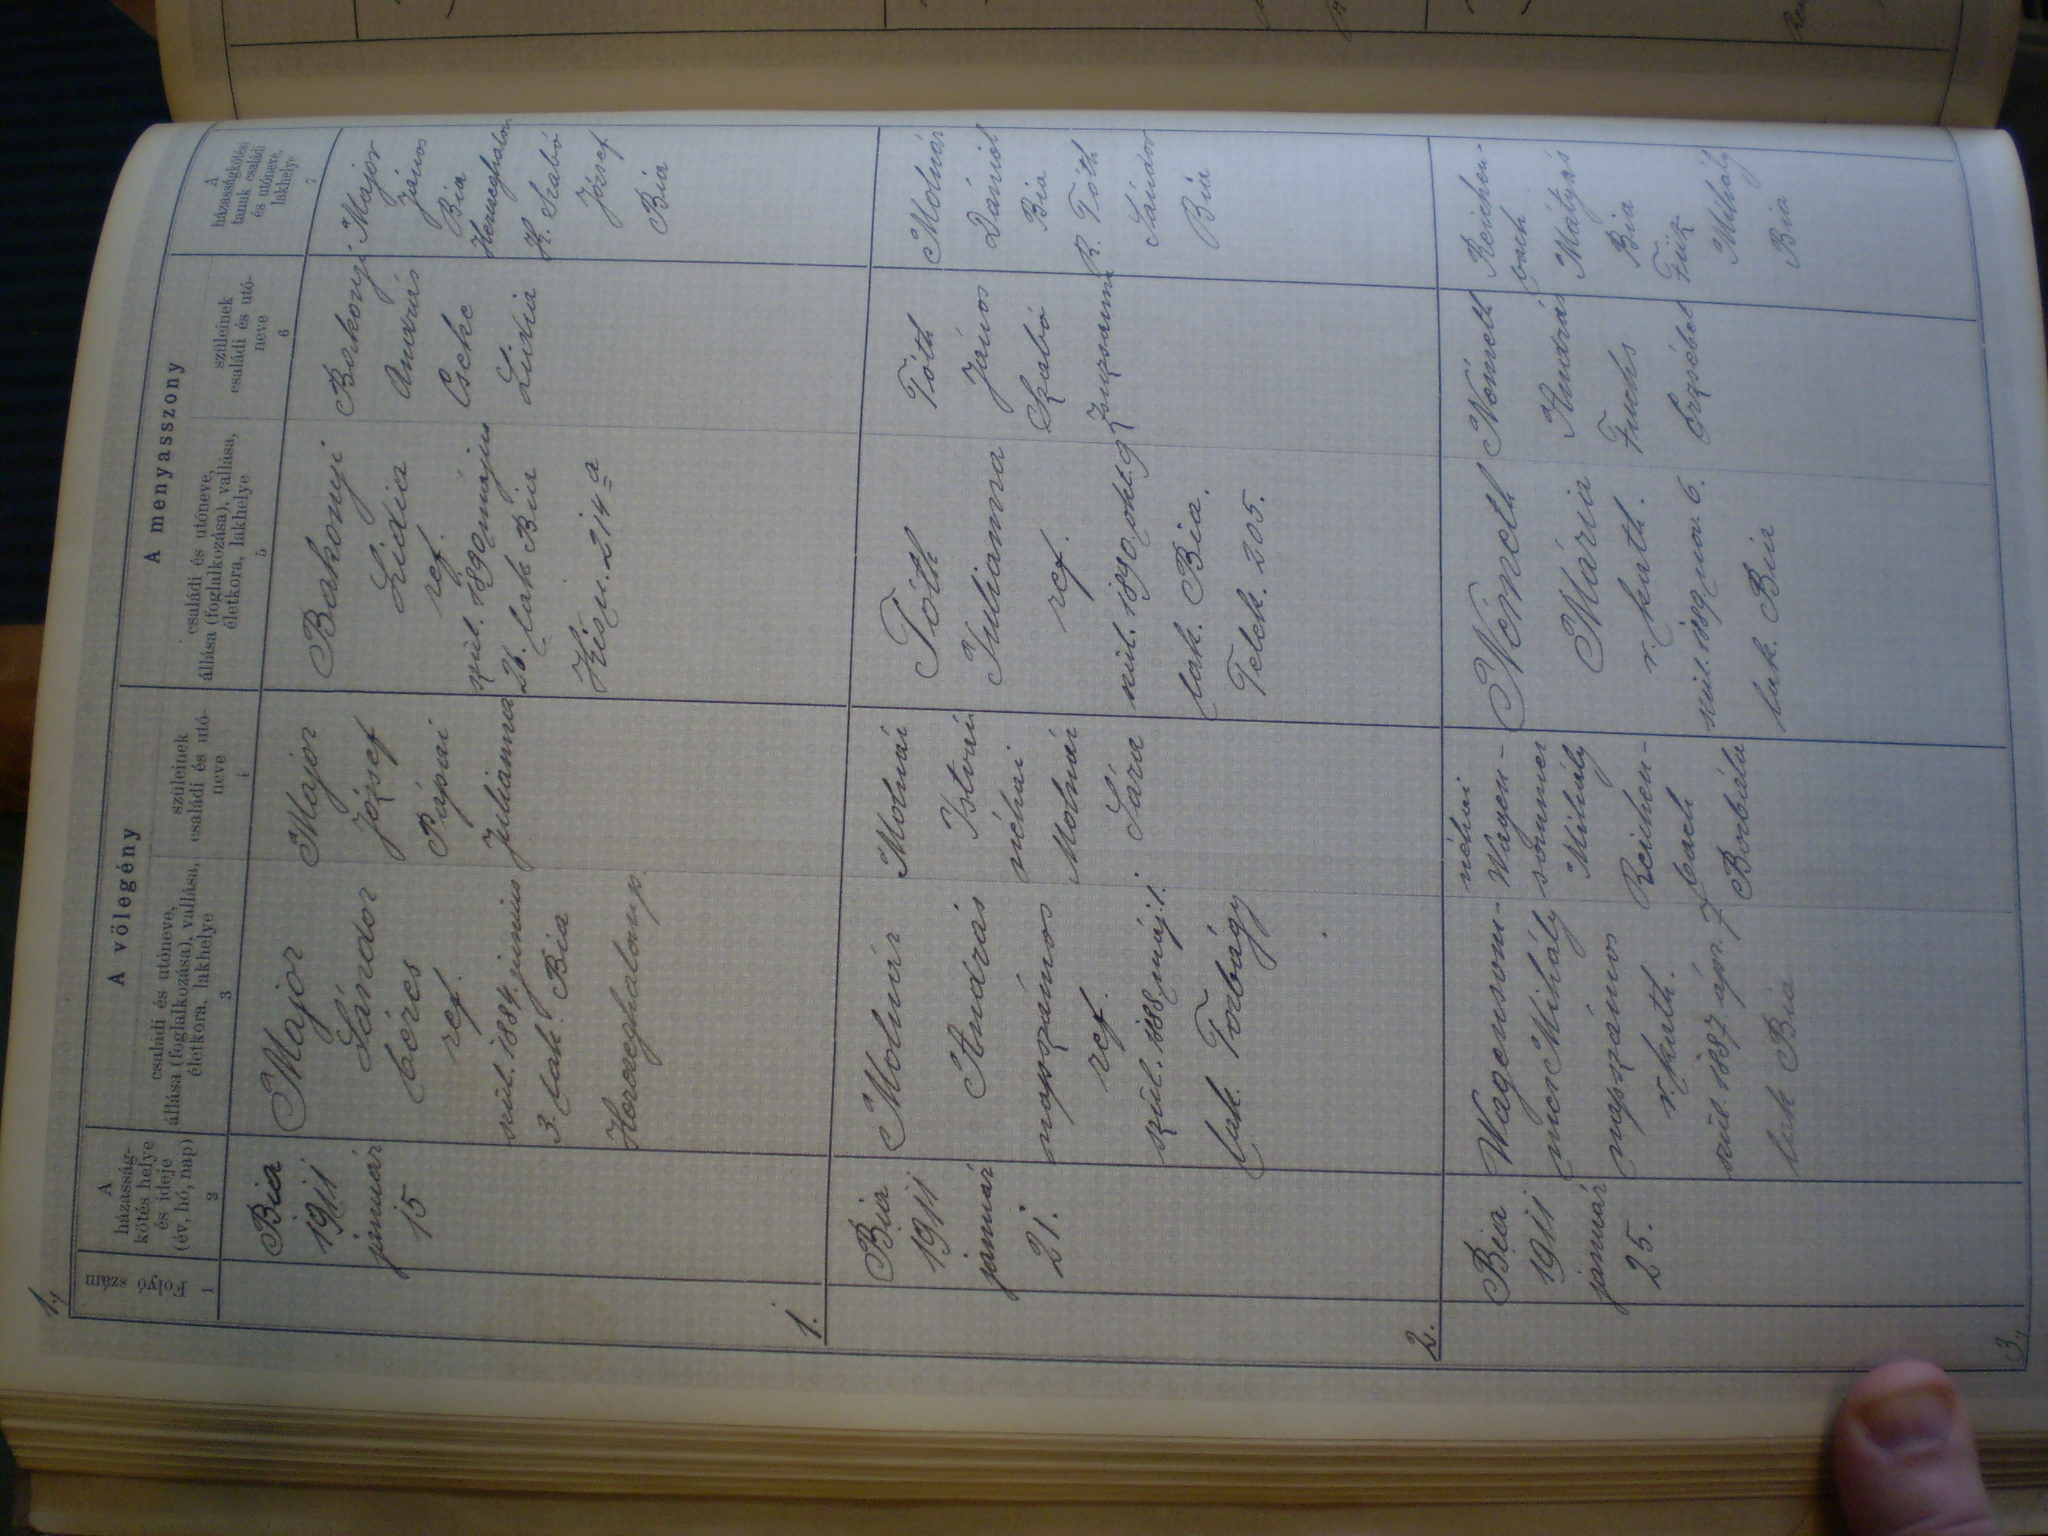 1,
A vőlegény
A menyasszony
Folyó
szám
1
A
házasság-
kötés helye
és ideje
(év, hó, nap)
2
családi és utóneve,
állása (foglalkozása), vallása,
életkora, lakhelye
3
szüleinek
családi és utó-
neve
4
családi és utóneve,
állása (foglalkozása), vallása,
életkora, lakhelye
5
szüleinek
családi és utó-
neve
6
A
házasságkötési
tanuk családi
és utóneve,
lakhelye
7
1.
Bia
1911
január
15
Major
Sándor
béres
ref.
szül. 1884. junius
3. lak. Bia
Herczeghalom p.
Major
József
Pápai
Julianna
Bakonyi
Lidia
ref.
szül. 1890 május
26. lak Bia
Kisu. 214 a
Bakonyi
András
Cseke
Lidia
Major
János
Bia
Herceghalom
K. Szabó
József
Bia
2.
Bia
1911
január
21.
Molnár
András
napszámos
ref.
szül. 1888 máj. 1.
lak. Torbágy
Molnár
István
néhai
Molnár
Sára
Tóth
Julianna
ref.
szül. 1890. okt. 9
lak. Bia.
Telek. 205.
Tóth
János
Szabó
Zsuzsanna
Molnár
Dániel
Bia
R. Tóth
Sándor
Bia
3,
Bia
1911
január
25.
Wagensom-
mer Mihály
napszámos
r. kath.
szül. 1887. ápr. 7
lak Bia
néhai
Wagen-
sommer
Mihály
Reichen-
bach
Borbála
Németh
Mária
r. kath.
szül. 1889 nov. 6.
lak. Bia
Németh
András
Fuchs
Erzsébet
Reichen-
bach
Mátyás
Bia
Füz
Mihály
Bia